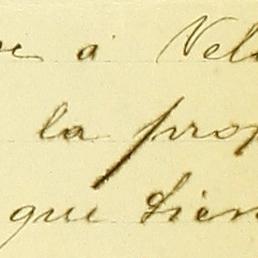 se á Vel
la prop
que tien